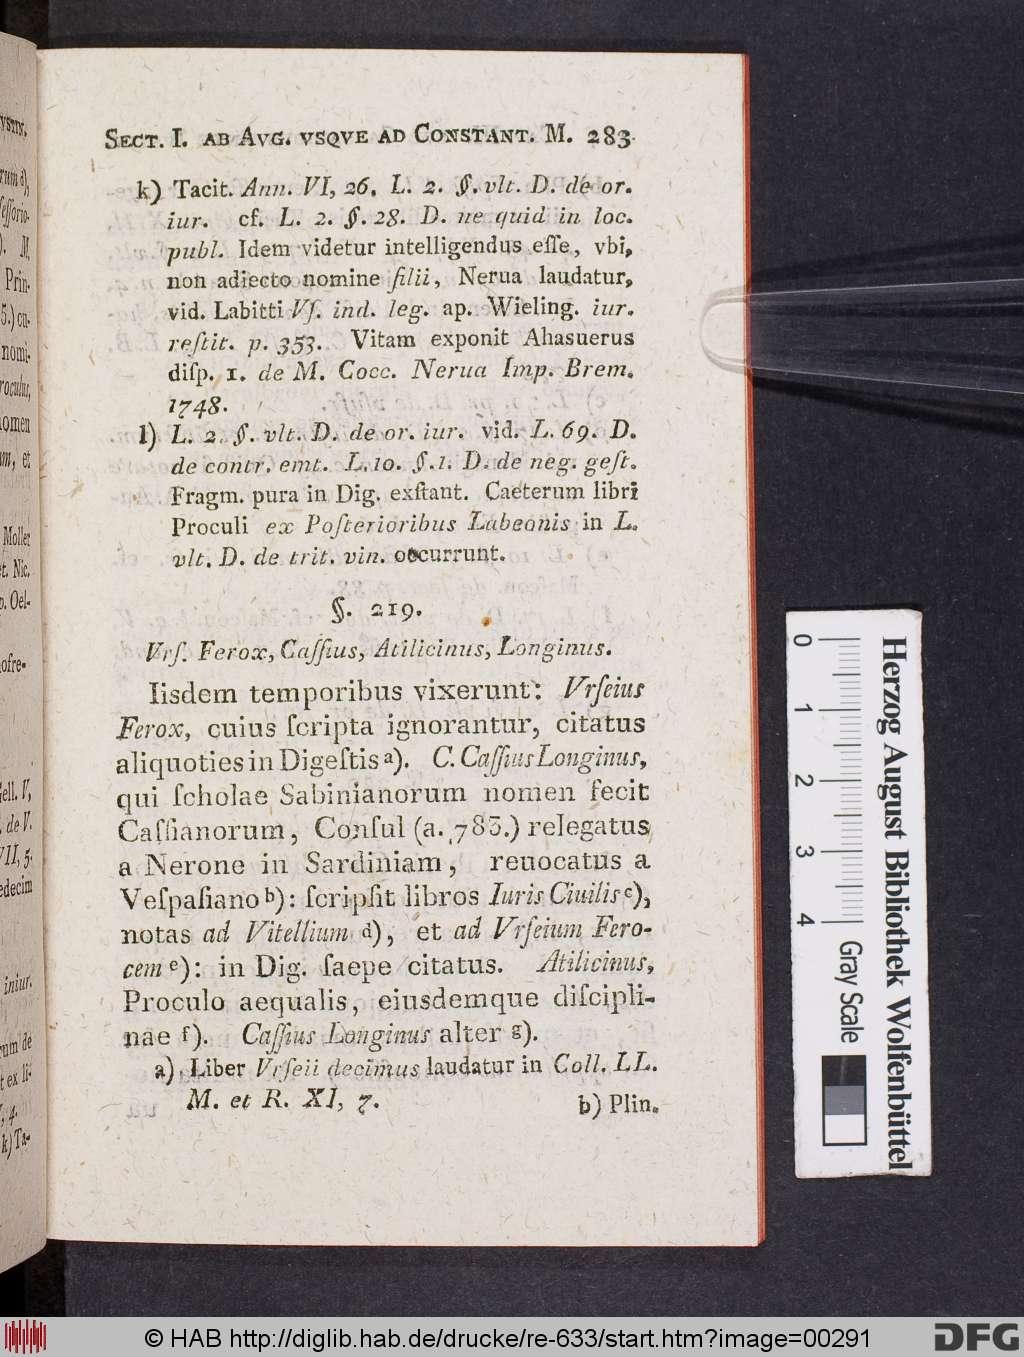 SECT. I. AB AVG. VSQVE AD CONSTANT. M. 283
k) Tacit. Ann. VI, 26. L. 2. §. vlt. D. de or.
iur. cf. L. 2. §. 28. D. ne quid in loc.
publ. Idem videtur intelligendus eſſe, vbi,
non adiecto nomine filii, Nerua laudatur,
vid. Labitti Vſ. ind. leg. ap. Wieling. iur.
reſtit. p. 353. Vitam exponit Ahasuerus
diſp. 1. de M. Cocc. Nerua Imp. Brem.
1748.
l) L. 2. §. vlt. D. de or. iur. vid. L. 69. D.
de contr. emt. L. 10. §. 1. D. de neg. geſt.
Fragm. pura in Dig. exſtant. Caeterum libri
Proculi ex Poſterioribus Labeonis in L.
vlt. D. de trit. vin. occurrunt.
§. 219.
Vrſ. Ferox, Caſſius, Atilicinus, Longinus.
Iisdem temporibus vixerunt: Vrſeius
Ferox, cuius ſcripta ignorantur, citatus
aliquoties in Digeſtis a). C. Caſſius Longinus,
qui ſcholae Sabinianorum nomen fecit
Caſſianorum, Conſul (a. 783.) relegatus
a Nerone in Sardiniam, reuocatus a
Veſpaſiano b): ſcripſit libros Iuris Ciuilis c),
notas ad Vitellium d), et ad Vrſeium Fero-
cem e): in Dig. ſaepe citatus. Atilicinus,
Proculo aequalis, eiusdemque diſcipli-
nae f). Caſſius Longinus alter g).
a) Liber Vrſeii decimus laudatur in Coll. LL.
M. et R. XI, 7.
b) Plin.
Herzog August Bibliothek Wolfenbüttel
0 1 2 3 4
Gray Scale
© HAB http://diglib.hab.de/drucke/re-633/start.htm?image=00291
DFG